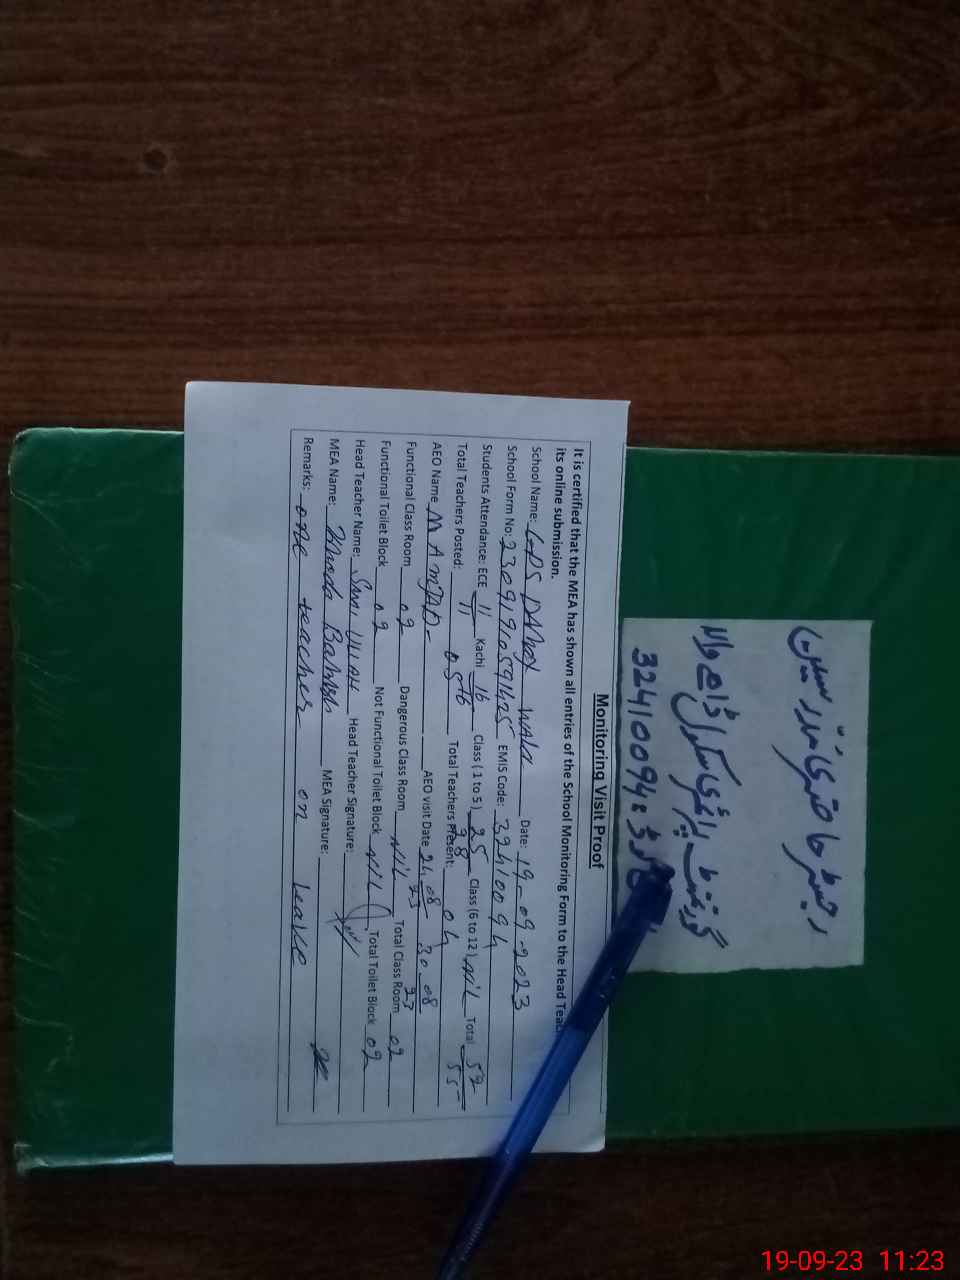 رجسٹر حاضری مدرسین
گورنمنٹ پرائمری سکول ڈاہے والا
32410094:
Monitoring Visit Proof
It is certified that the MEA has shown all entries of the School Monitoring Form to the Head Teac
its online submission.
School Name: GPS DAhay wala Date: 19-09-2023
School Form No: EMIS Code: 32410094
Students Attendance: ECE 11/11 Kachi 16/16 Class (1 to 5) 25/28 Class (6 to 12) Nil Total 52/55
Total Teachers Posted: 05 Total Teachers Present: 04
AEO Name M AMJAD AEO visit Date 24-08-23 30-08-23
Functional Class Room 02 Dangerous Class Room Nil Total Class Room 02
Functional Toilet Block 02 Not Functional Toilet Block Nil Total Toilet Block 02
Head Teacher Name: Sami Ullah Head Teacher Signature:
MEA Name: Bakhsh MEA Signature:
Remarks: one teacher on leave
19-09-23 11:23